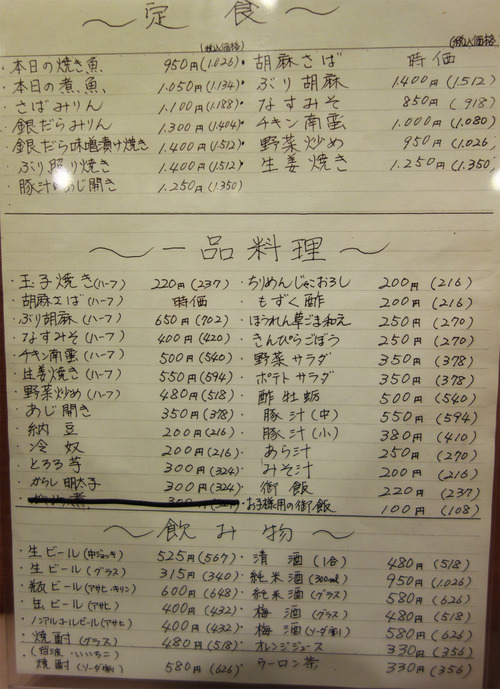 ～定食～
(税込価格)
(税込価格)
・本日の焼き魚 950円(1.026)
・本日の煮魚 1.050円(1.134)
・さばみりん 1.100円(1.188)
・銀だらみりん 1.300円(1.404)
・銀だら味噌漬け焼き 1.400円(1.512)
・ぶり照り焼き 1.400円(1.512)
・豚汁とあじ開き 1.250円(1.350)
・胡麻さば 時価
・ぶり胡麻 1.400円(1.512)
・なすみそ 850円(918)
・チキン南蛮 1.000円(1.080)
・野菜炒め 950円(1.026)
・生姜焼き 1.250円(1.350)
～一品料理～
・玉子焼き(ハーフ) 220円(237)
・胡麻さば(ハーフ) 時価
・ぶり胡麻(ハーフ) 650円(702)
・なすみそ(ハーフ) 400円(420)
・チキン南蛮(ハーフ) 500円(540)
・生姜焼き(ハーフ) 550円(594)
・野菜炒め(ハーフ) 480円(518)
・あじ開き 350円(378)
・納豆 200円(216)
・冷奴 200円(216)
・とろろ芋 300円(324)
・からし明太子 300円(324)
・ちりめんじゃこおろし 200円(216)
・もずく酢 200円(216)
・ほうれん草ごま和え 250円(270)
・きんぴらごぼう 250円(270)
・野菜サラダ 350円(378)
・ポテトサラダ 350円(378)
・酢牡蛎 500円(540)
・豚汁(中) 550円(594)
・豚汁(小) 380円(410)
・あら汁 250円(270)
・みそ汁 200円(216)
・御飯 220円(237)
・お子様用の御飯 100円(108)
～飲み物～
・生ビール(中ジョッキ) 525円(567)
・生ビール(グラス) 315円(340)
・瓶ビール(アサヒ・キリン) 600円(648)
・缶ビール(アサヒ) 400円(432)
・ノンアルコールビール(アサヒ) 400円(432)
・焼酎(グラス) 480円(518)
いいちこ)
焼酎(ソーダ割) 580円(626)
・清酒(1合) 480円(518)
・純米酒(300ml) 950円(1.026)
・純米酒(グラス) 580円(626)
・梅酒(グラス) 480円(518)
・梅酒(ソーダ割) 580円(626)
・オレンジジュース 330円(356)
・ウーロン茶 330円(356)